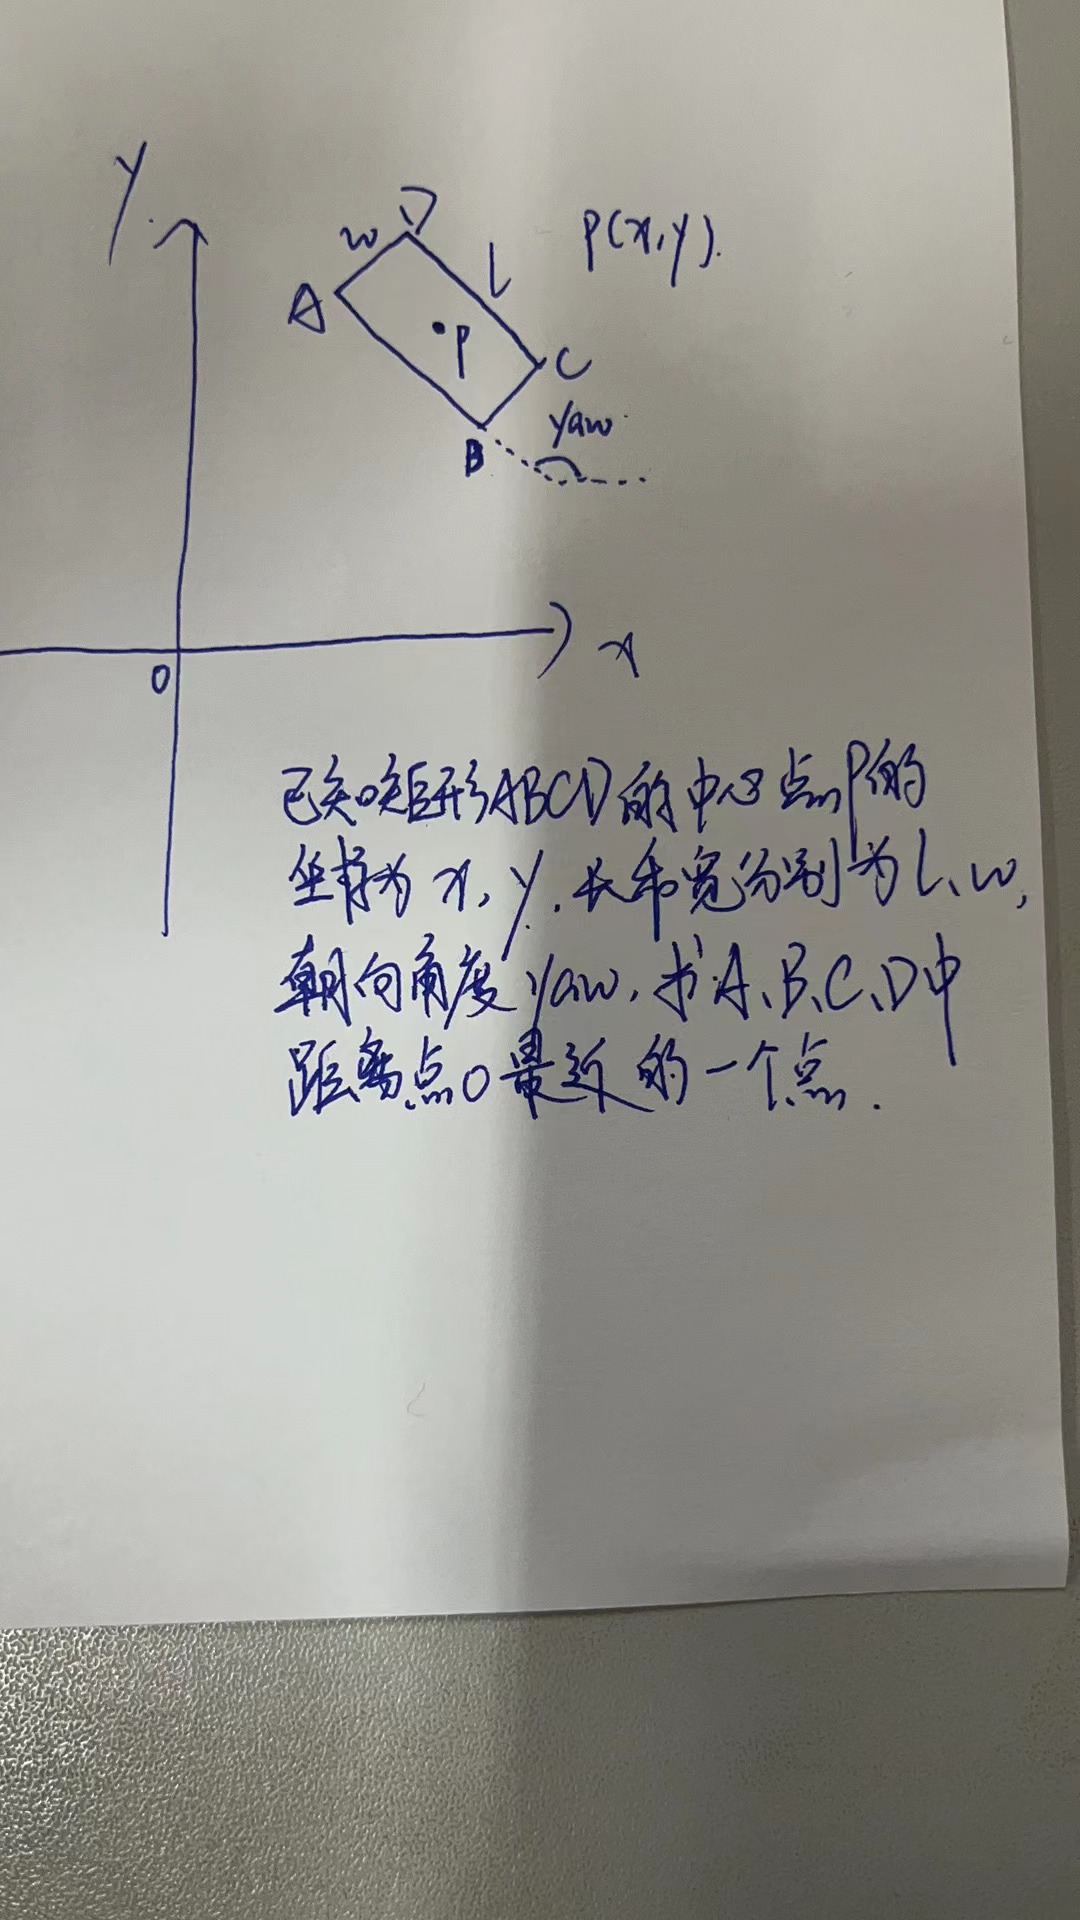 y
D
w
l
P(x,y).
A
P
C
yaw
B
x
O
已知矩形ABCD的中心点P的
坐标为x,y.长和宽分别为l、w,
朝向角度yaw,求A、B、C、D中
距离点O最近的一个点.